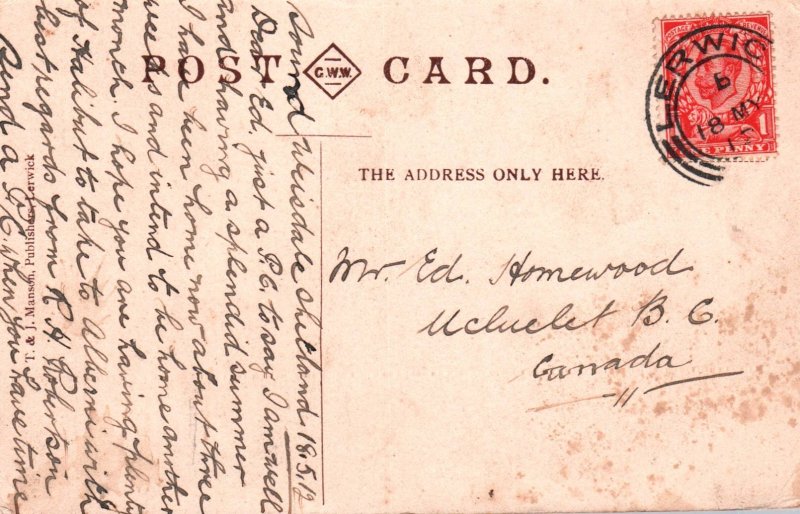 POST G.W.W. CARD.
THE ADDRESS ONLY HERE.
LERWICK
18 MY
12
POSTAGE & REVENUE
ONE PENNY
Mr. Ed. Homewood
Ucluelet B. C.
Canada
Sound Weisdale Shetland 18.5.12
Dear Ed. just a P.C. to say I am well
and having a splendid summer
I have been home now about three
weeks and intend to be home another
month. I hope you are having plenty
of Halibut to take to Alberni with
best regards from R H Robertson
Send a P.C. when you have time
T. & J. Manson, Publishers, Lerwick